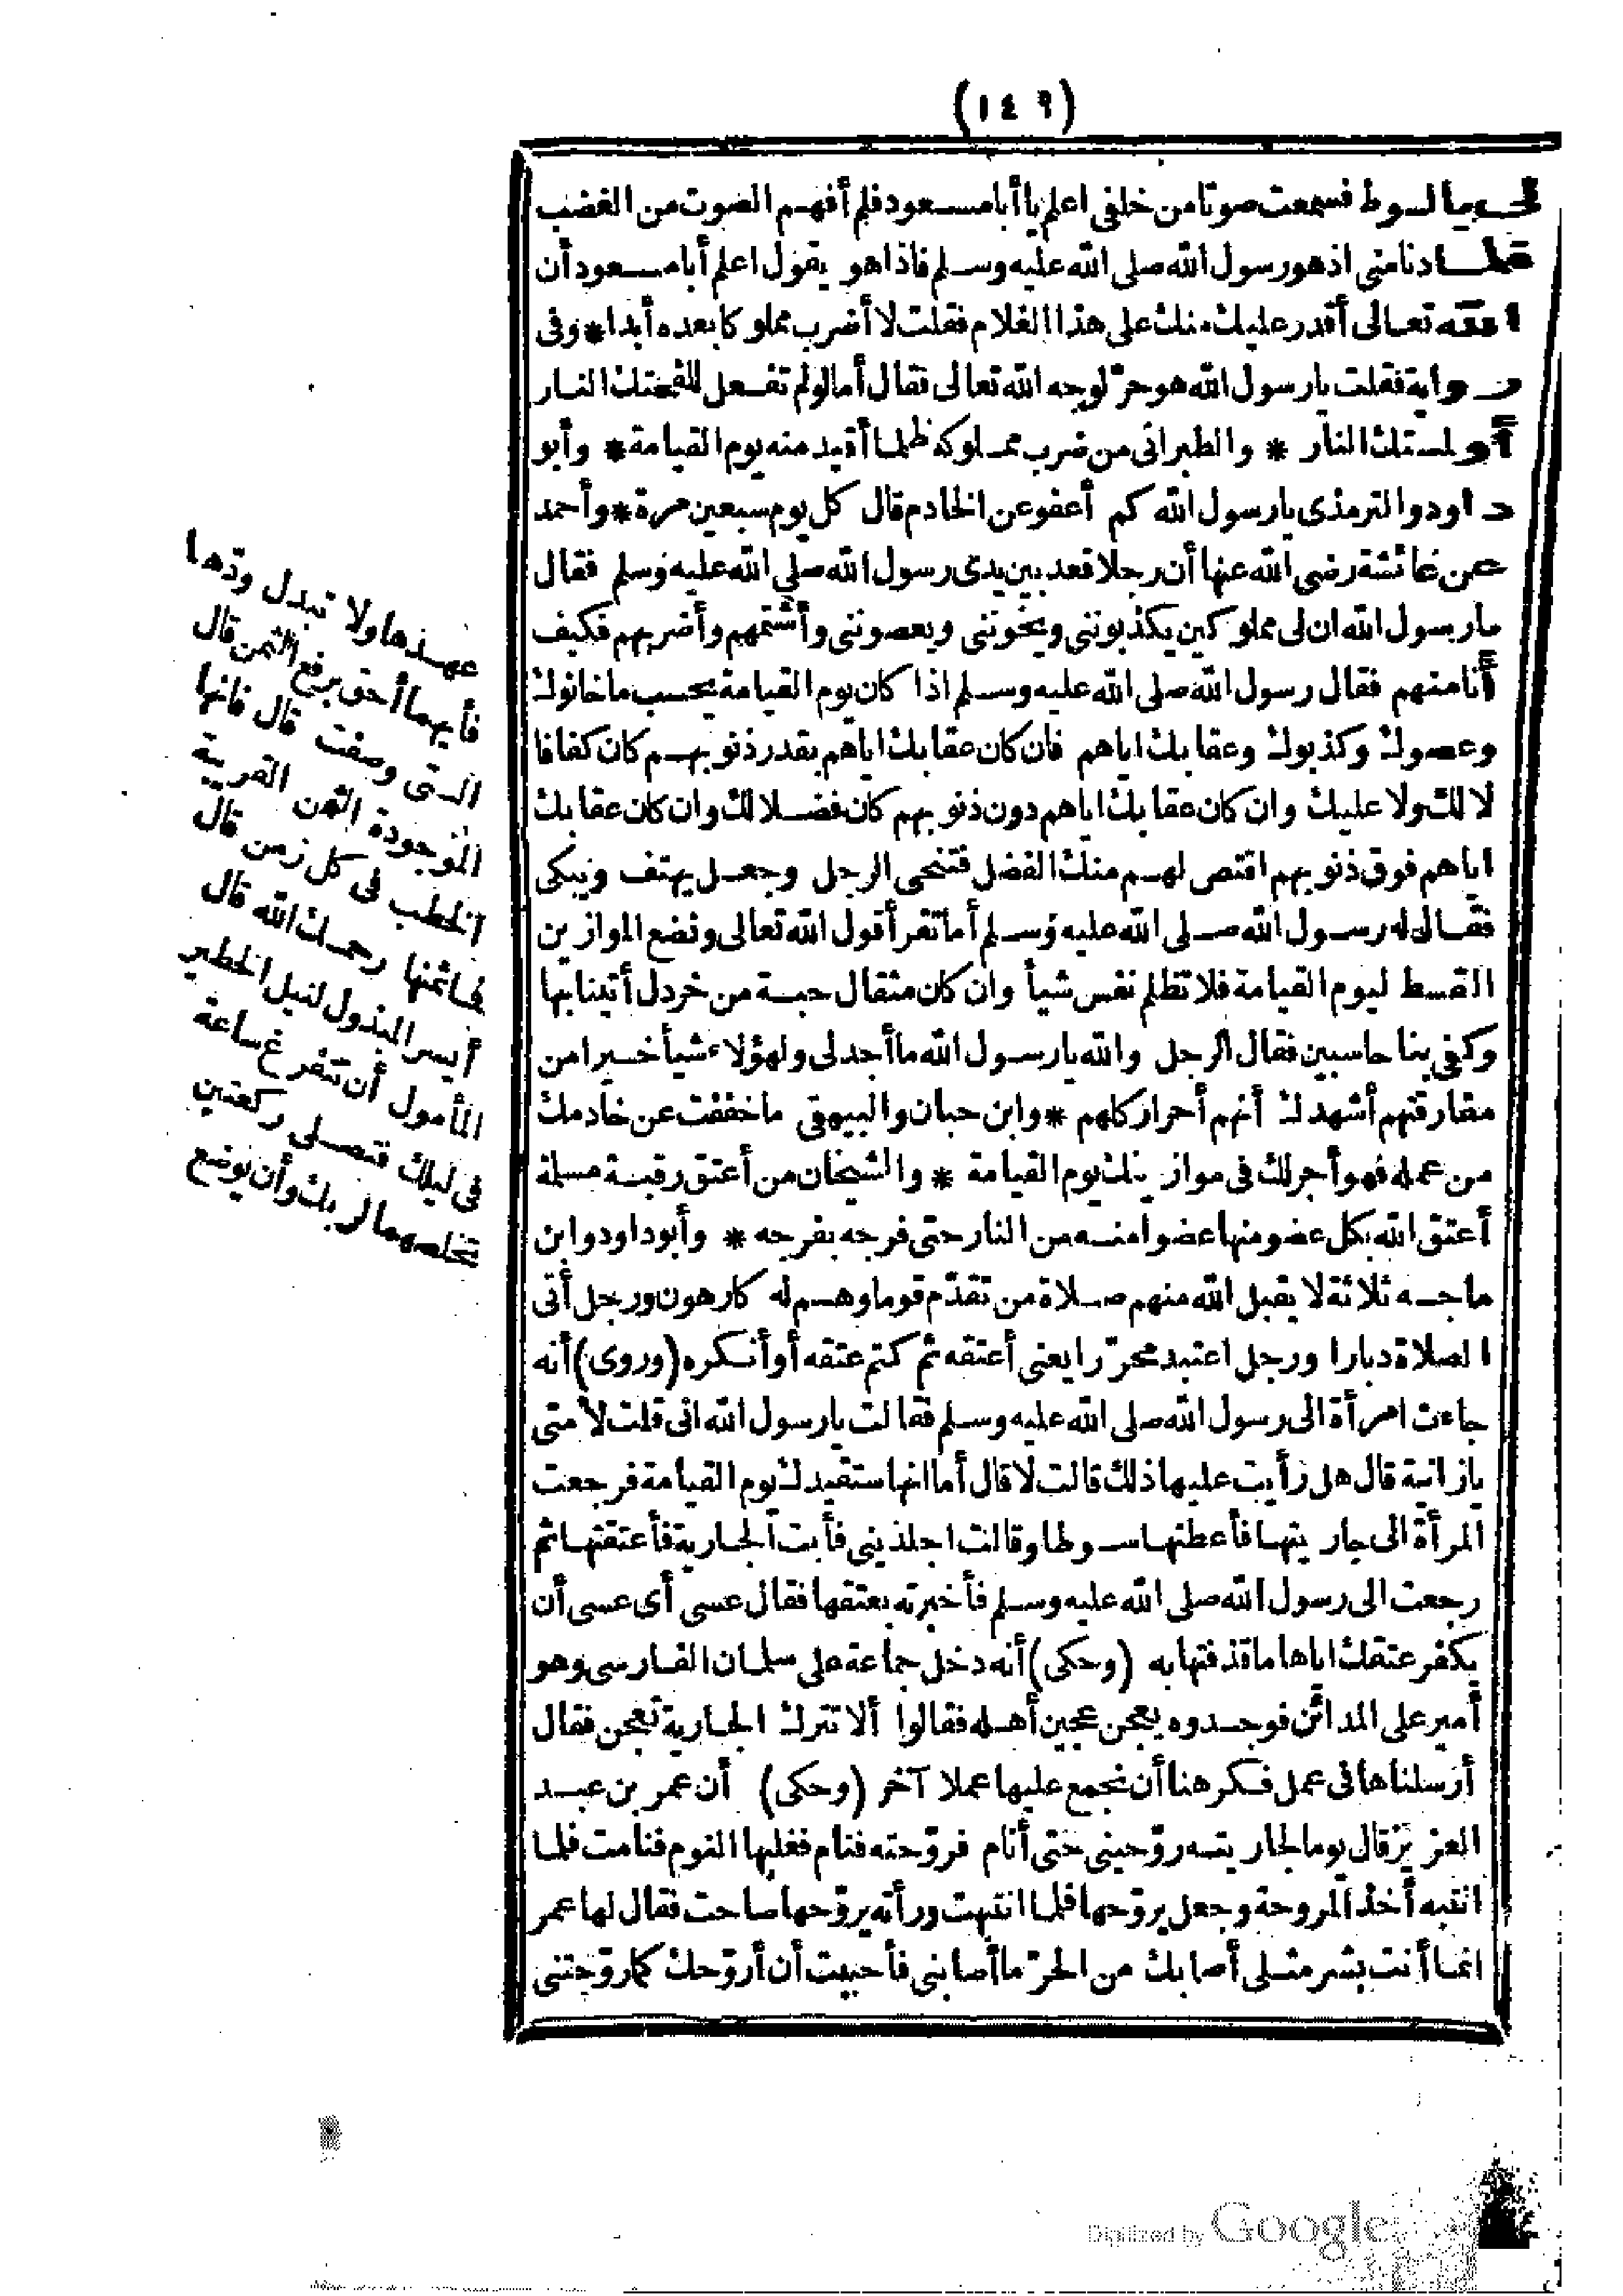 (١٤٩)
لى بالسوط فسمعت صوتا من خلفى اعلم يا أبا مسعود فلم أفهم الصوت من الغضب
فلما دنا منى اذ هو رسول الله صلى الله عليه وسلم فاذا هو يقول اعلم أبا مسعود أن
الله تعالى أقدر عليك منك على هذا الغلام فقلت لا أضرب مملوكا بعده أبدا * وفى
رواية فقلت يا رسول الله هو حرّ لوجه الله تعالى فقال أما لو لم تفعل للفحتك النار
أو لمستك النار * والطبرانى من ضرب مملوكه ظلما أقيد منه يوم القيامة * وأبو
داود والترمذى يا رسول الله كم أعفو عن الخادم قال كل يوم سبعين مرة * وأحمد
عن عائشة رضى الله عنها أن رجلا قعد بين يدى رسول الله صلى الله عليه وسلم فقال
يا رسول الله ان لى مملوكين يكذبوننى ويخونوننى ويعصوننى وأشتمهم وأضربهم فكيف
أنا منهم فقال رسول الله صلى الله عليه وسلم اذا كان يوم القيامة يحسب ما خانوك
وعصوك وكذبوك وعقابك اياهم فان كان عقابك اياهم بقدر ذنوبهم كان كفافا
لا لك ولا عليك وان كان عقابك اياهم دون ذنوبهم كان فضلا لك وان كان عقابك
اياهم فوق ذنوبهم اقتص لهم منك الفضل فتنحى الرجل وجعل يهتف ويبكى
فقال له رسول الله صلى الله عليه وسلم أما تقرأ قول الله تعالى ونضع الموازين
القسط ليوم القيامة فلا تظلم نفس شيأ وان كان مثقال حبة من خردل أتينا بها
وكفى بنا حاسبين فقال الرجل والله يا رسول الله ما أجد لى ولهؤلاء شيأ خيرا من
مفارقتهم أشهدك أنهم أحرار كلهم * وابن حبان والبيهقى ما خففت عن خادمك
من عمله فهو أجر لك فى موازينك يوم القيامة * والشيخان من أعتق رقبة مسلمة
أعتق الله بكل عضو منها عضوا منه من النار حتى فرجه بفرجه * وأبو داود وابن
ماجه ثلاثة لا يقبل الله منهم صلاة من تقدّم قوما وهم له كارهون ورجل أتى
الصلاة دبارا ورجل اعتبد محرّرا يعنى أعتقه ثم كتم عتقه أو أنكره (وروى) أنه
جاءت امرأة الى رسول الله صلى الله عليه وسلم فقالت يا رسول الله انى قلت لأمتى
يا زانية قال هل رأيت عليها ذلك قالت لا قال أما انها ستقيدك يوم القيامة فرجعت
المرأة الى جاريتها فأعطتها سوطا وقالت اجلدينى فأبت الجارية فأعتقتها ثم
رجعت الى رسول الله صلى الله عليه وسلم فأخبرته بعتقها فقال عسى أى عسى أن
يكفر عتقك اياها ما قذفتها به (وحكى) أنه دخل جماعة على سلمان الفارسى وهو
أمير على المدائن فوجدوه يعجن عجين أهله فقالوا ألا تترك الجارية تعجن فقال
أرسلناها فى عمل فكرهنا أن نجمع عليها عملا آخر (وحكى) أن عمر بن عبد
العزيز قال يوما لجاريته روّحينى حتى أنام فروّحته فنام فغلبها النوم فنامت فلما
انتبه أخذ المروحة وجعل يروّحها فلما انتبهت ورأته يروّحها صاحت فقال لها عمر
انما أنت بشر مثلى أصابك من الحرّ ما أصابنى فأحببت أن أروّحك كما روّحتنى
عهدها ولا تبدل ودّها
فأيهما أحق برفع الثمن قال
التى وصفت قال فانها
الموجودة الثمن القريبة
الخطب فى كل زمن قال
فما ثمنها رحمك الله قال
أيسر المبذول لنيل الخطير
المأمول أن تتفرغ ساعة
فى ليلك فتصلى ركعتين
تخلصهما لربك وأن يوضع
Digitized by Google